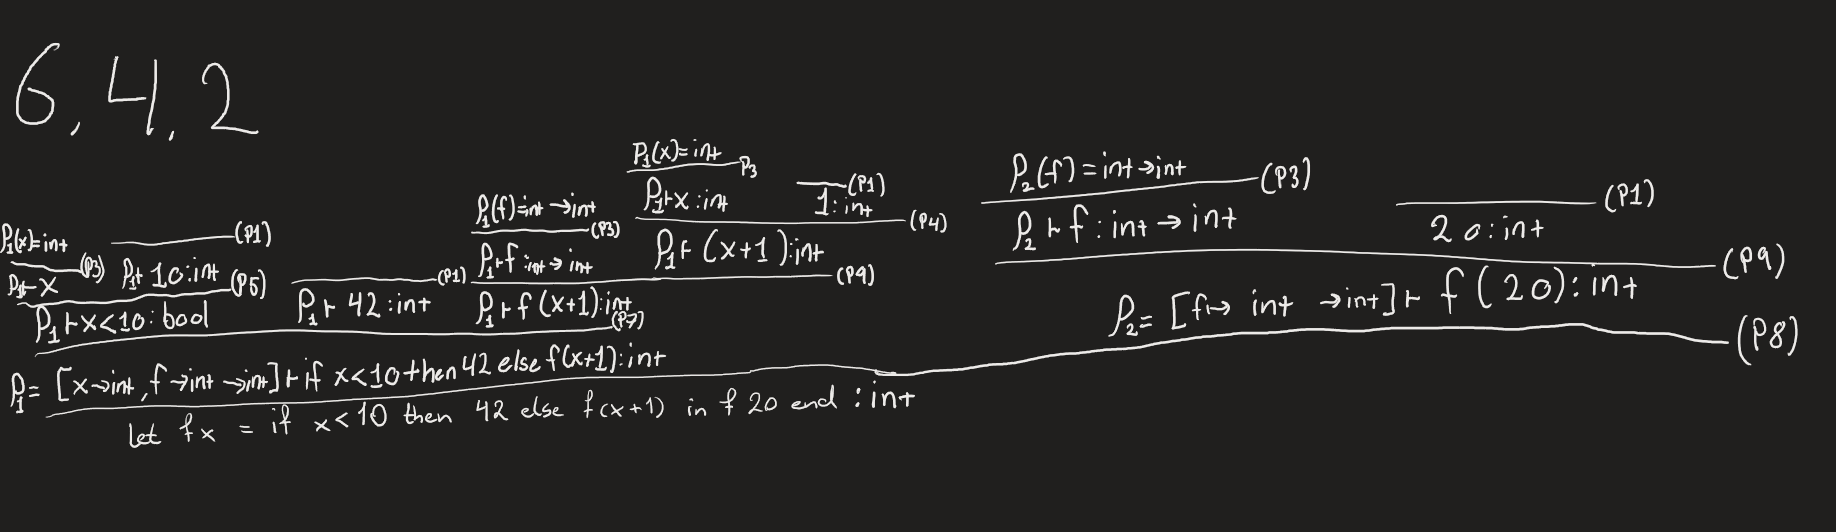 6,4,2
ρ₁(x)=int (P3)
ρ₁⊢x
(P1)
ρ₁⊢ 10:int (P5)
ρ₁⊢x<10:bool
(P1)
ρ₁⊢ 42:int
ρ₁(f)=int→int (P3)
ρ₁⊢f:int→int
ρ₁(x)=int P3
ρ₁⊢x:int
(P1)
1:int (P4)
ρ₁⊢(x+1):int (P9)
ρ₁⊢f(x+1):int (P7)
ρ₁=[x→int,f→int→int]⊢if x<10 then 42 else f(x+1):int
ρ₂(f)=int→int (P3)
ρ₂⊢f:int→int
(P1)
20:int (P9)
ρ₂=[f↦ int →int]⊢ f(20):int (P8)
let f x = if x<10 then 42 else f(x+1) in f 20 end :int